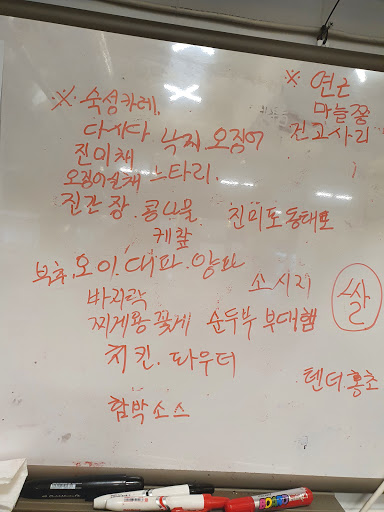 ※ 숙성카레.
다시다 낙지 오징어
진미채
오징어실채 느타리.
진간장. 콩나물 진미도동태포
케찹
※ 연근
마늘쫑
건고사리
부추, 오이. 대파. 양파
소시지
바지락
찌게용꽃게 순두부 부대햄
쌀
치킨. 파우더
텐더.홍초
함박소스